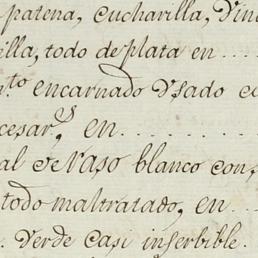 patena, cucharilla, vin
illa, todo de plata en ....
n.to encarnado usado co
cesar.s, en ........
al de raso blanco con,
todo maltratado, en ...
. verde casi inserbible.